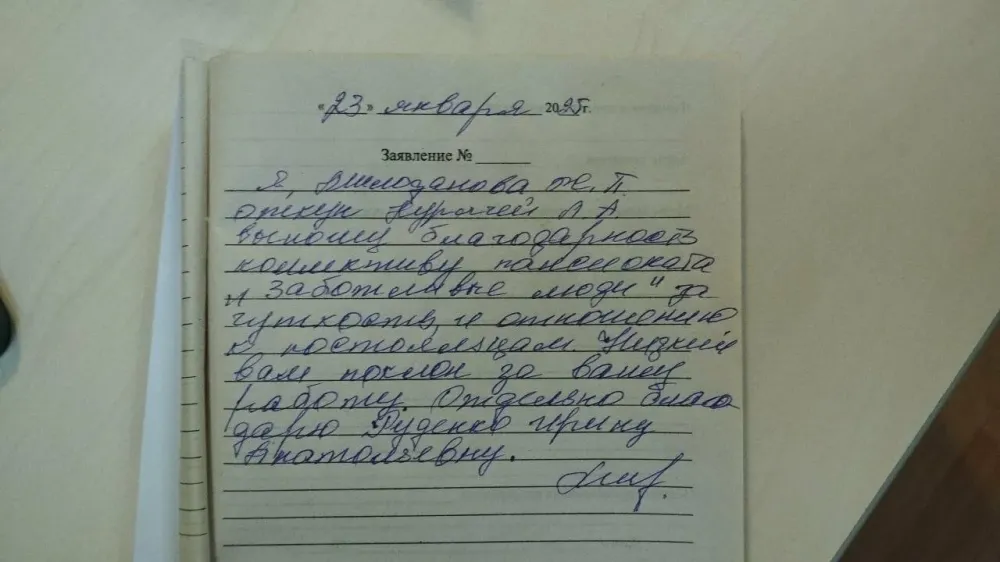 «23» января 2025г.
Заявление №
Я, Т.П.
опекун Л А
выношу благодарность
коллективу пансионата
"Заботливые люди" за
чуткость и отношению
к постояльцам. Низкий
вам поклон за вашу
работу. Отдельно благо
дарю Руденко Ирину
Анатольевну.